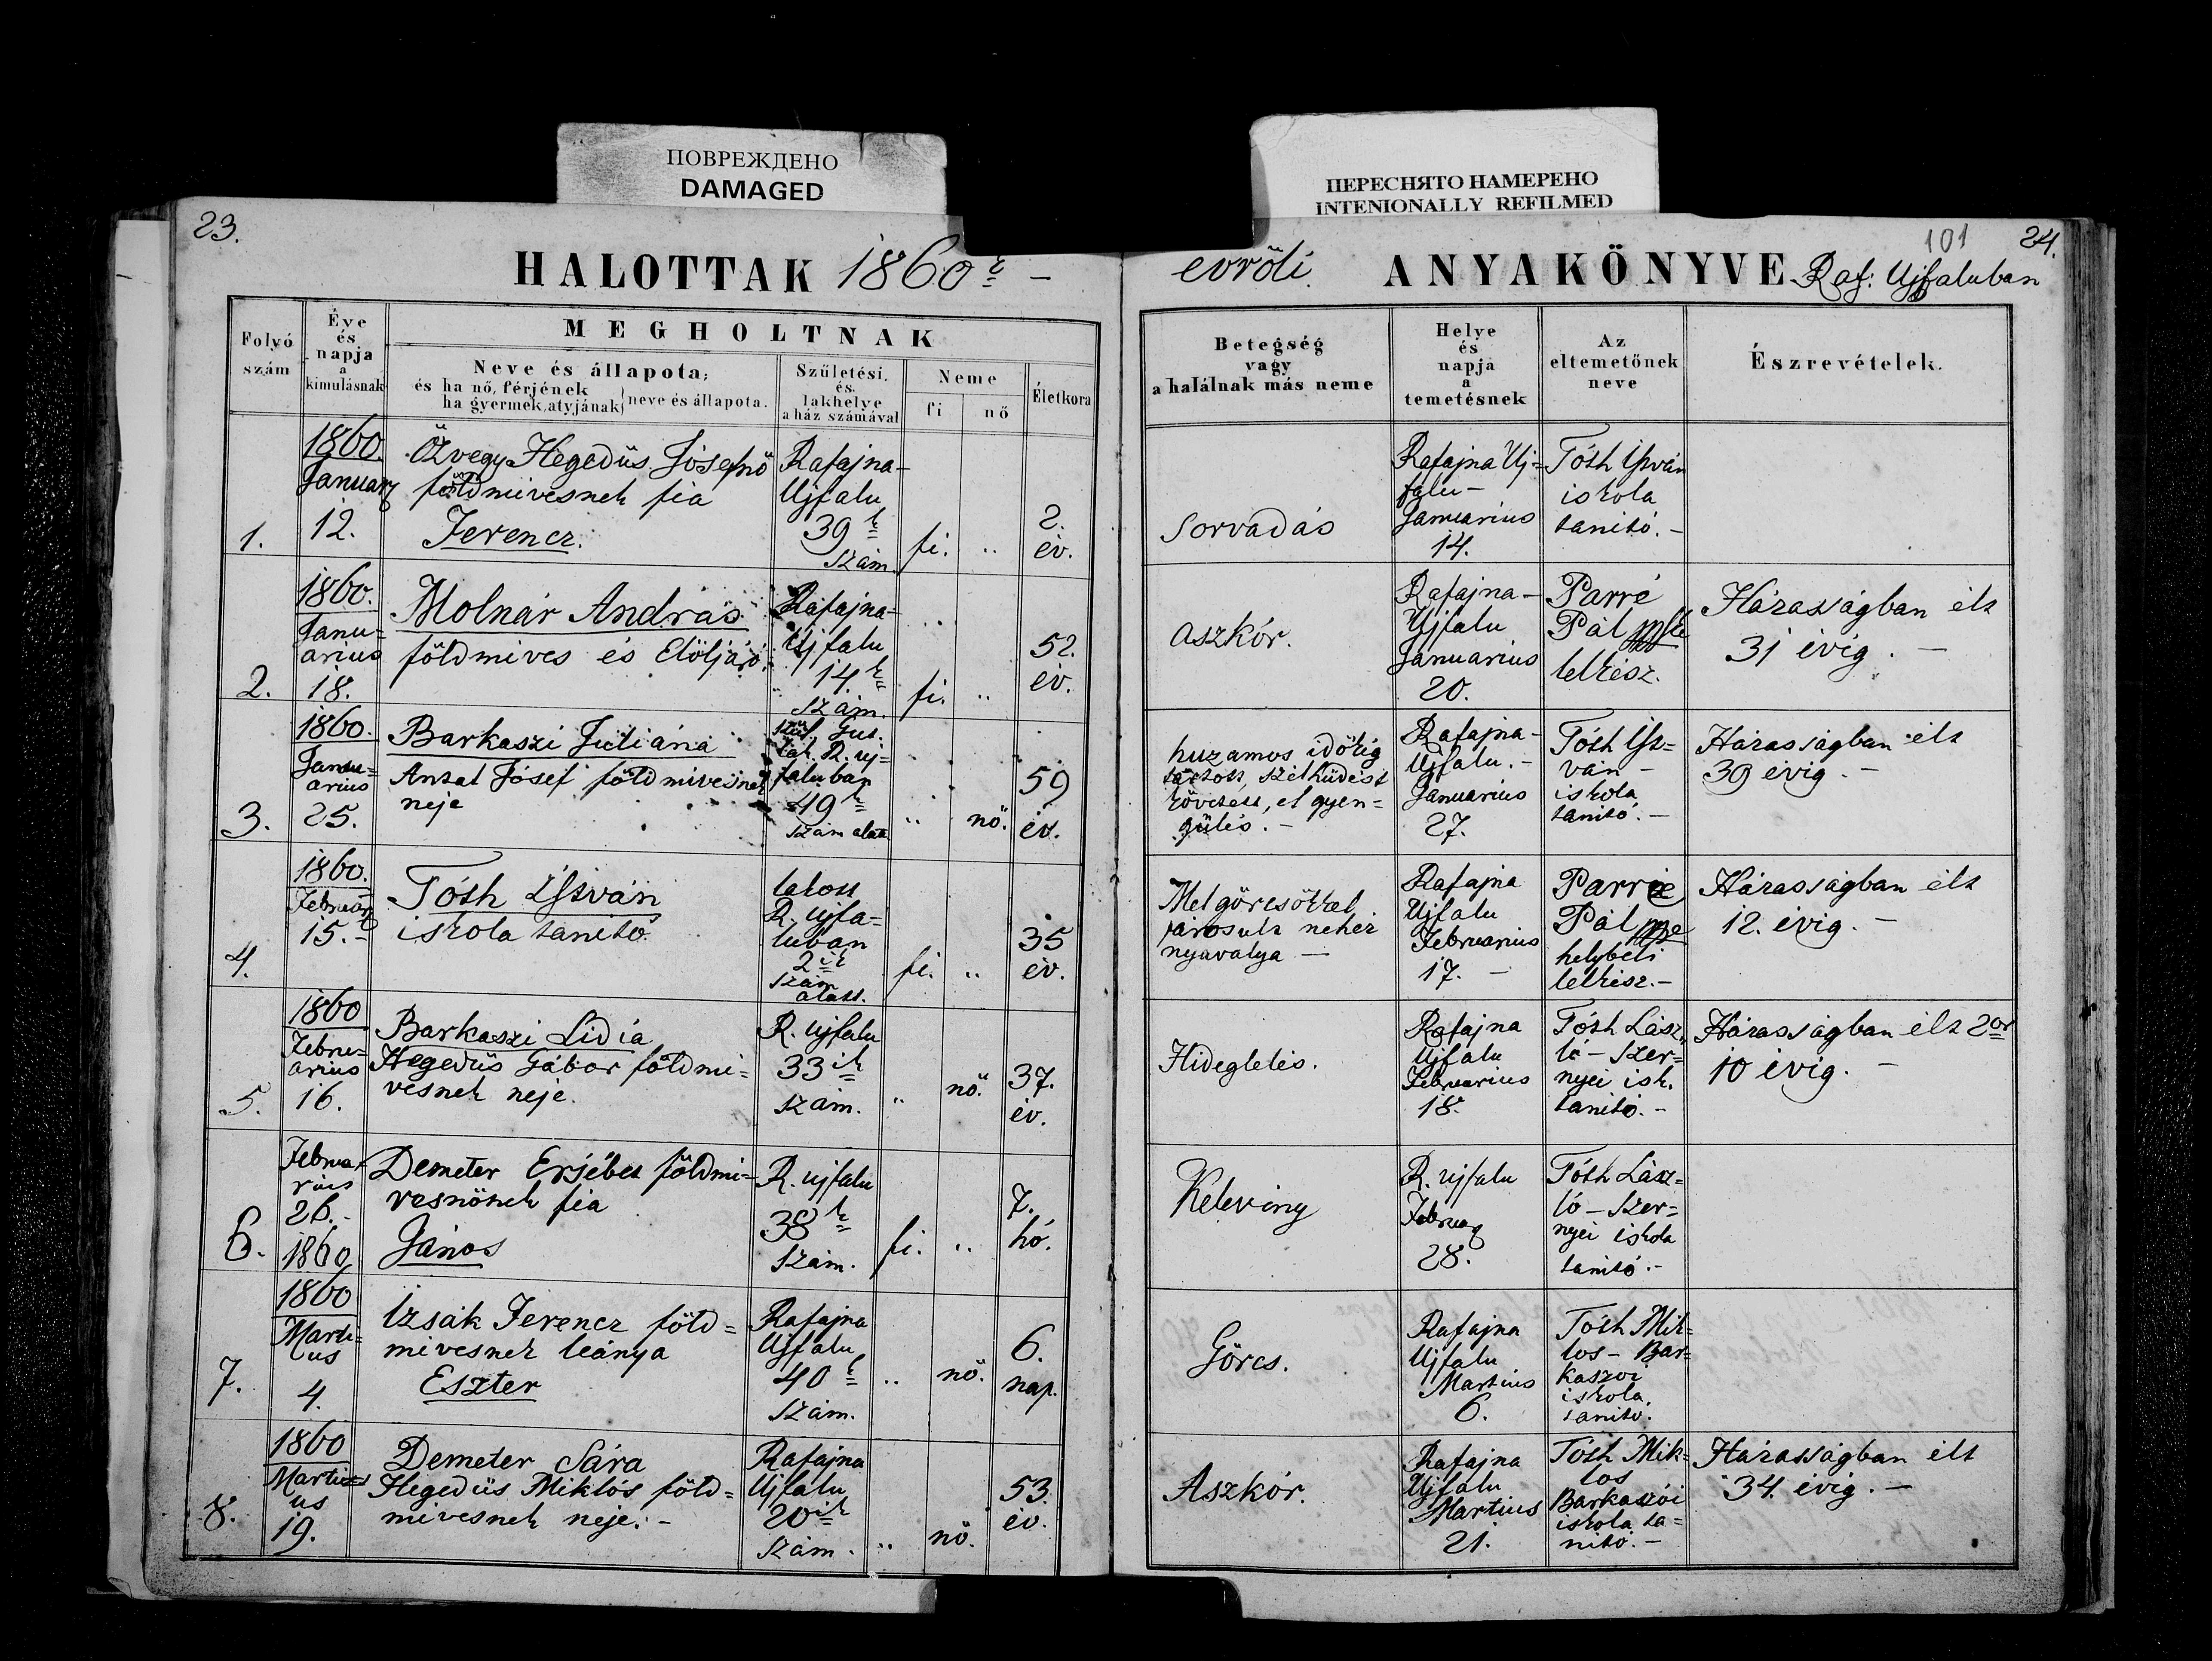 ПОВРЕЖДЕНО
DAMAGED
ПЕРЕСНЯТО НАМЕРЕНО
INTENIONALLY REFILMED
23.
HALOTTAK 1860k –
evröli ANYAKÖNYVE Raf: Ujfaluban
101
24.
Folyó
szám
Éve
és
napja
a
kimulásnak
MEGHOLTNAK
Neve és állapota;
és ha nő, férjének
ha gyermek, atyjának} neve és állapota.
Születési,
és
lakhelye
a ház számával
Neme
fi
nő
Életkora
Betegség
vagy
a halálnak más neme
Helye
és
napja
a
temetésnek
Az
eltemetőnek
neve
Észrevételek.
1.
1860.
Januarz
12.
Özvegy Hegedüs Jósefnö
földmivesnek fia
Ferencz.
Rafajna-
Ujfalu
39k
szám.
fi.
2.
év.
Sorvadás
Rafajna Uj=
falu –
Januarius
14.
Tóth István
iskola
tanitó. –
2.
1860.
Janu-
arius
18.
Molnár András
földmives és Elöljáró.
Rafajna-
Ujfalu
14.k
szám.
fi.
52.
év.
aszkór.
Rafajna –
Ujfalu
Januarius
20.
Parré
Pál
lelkész.
Házasságban élt
31 évig. –
3.
1860.
Janu=
arius
25.
Barkaszi Juliána
Antal Jósef földmivesnek
neje
szül. Gut.
lak. R. uj=
faluban
49k
szám alatt
nö.
59
év.
huzamos időkig
tartott szélhüdést
követett, el gyen=
gülés. –
Rafajna-
Ujfalu. –
Januarius
27.
Tóth Ist=
ván –
iskola
tanitó. –
Házasságban élt
39 évig. –
4.
1860.
Februarz
15. –
Tóth István
iskola tanító.
lakott
R. ujfa=
luban
2ik
szám
alatt.
fi.
35
év.
Mel görcsökkel
párosult nehéz
nyavalya –
Rafajna
Ujfalu
Februarius
17. –
Parré
Pál
helybéli
lelkész. –
Házasságban élt
12. évig. –
5.
1860
Febru=
arius
16.
Barkaszi Lidia
Hegedüs Gábor földmi=
vesnek neje.
R. ujfalu
33ik
szám.
nö.
37.
év.
Hideglelés.
Rafajna
Ujfalu
Februarius
18.
Tóth Lász
ló – Szer=
nyei isk.
tanitó. –
Házasságban élt 2or
10 évig. –
6.
Februa
rius
26. –
1860
Demeter Ersébet földmi=
vesnönek fia
János
R. ujfalu
38k
szám.
fi.
7.
hó.
Keleving
R. ujfalu
Februarz
28.
Tóth Lász=
ló – Szer=
nyei iskola
tanitó. –
7.
1860
Marti=
us
4.
Izsák Ferencz föld=
mivesnek leánya
Eszter
Rafajna
Ujfalu
40k
szám.
nö.
6.
nap.
Görcs.
Rafajna
Ujfalu
Martius
6.
Tóth Mik=
los – Bar=
kaszoi
iskola
tanitó.
8.
1860
Marti
us
19.
Demeter Sára
Hegedüs Miklós föld=
mivesnek neje. –
Rafajna
Ujfalu
20ik
szám.
nö.
53.
év.
Aszkór.
Rafajna
Ujfalu
Martius
21.
Tóth Mik=
los
Barkaszói
iskola ta=
nitó. –
Házasságban élt
34. évig. –